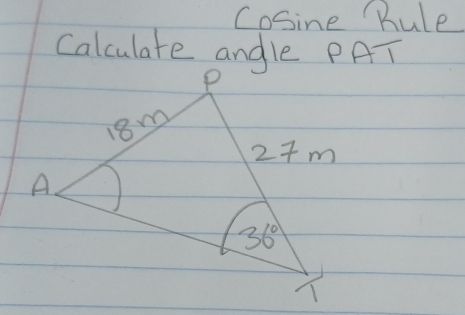 Cosine Rule
Calculate angle PAT
P
18m
27m
A
36°
T